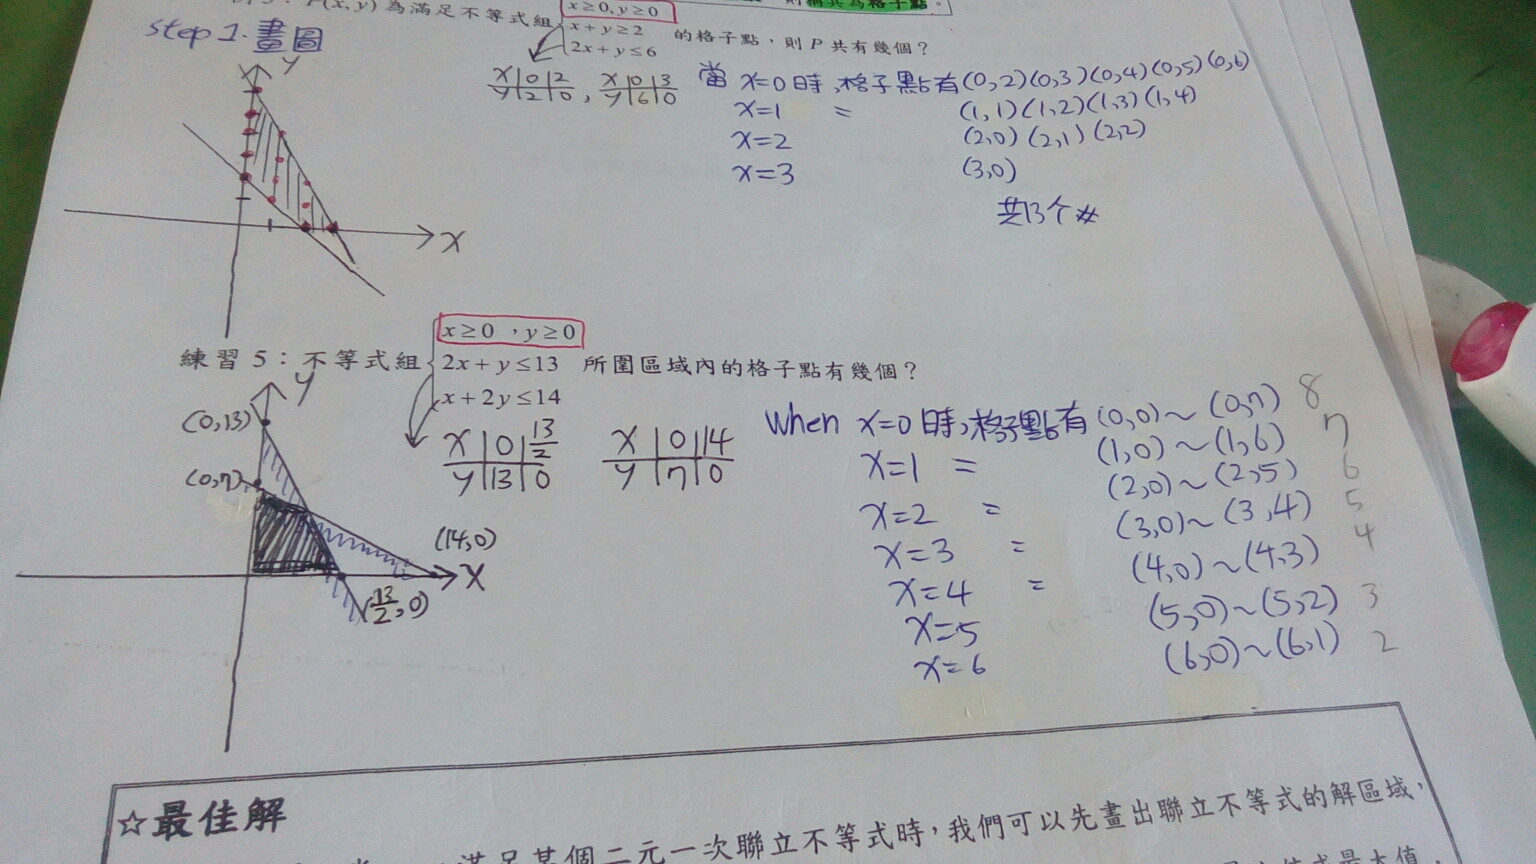 P(x, y) 為滿足不等式組 x≥0, y≥0
x+y≥2
2x+y≤6
的格子點，則 P 共有幾個？
則稱其為格子點。
step 1. 畫圖
y
x
x | 0 | 2
y | 2 | 0 ,
x | 0 | 3
y | 6 | 0
當 x=0 時,格子點有 (0,2)(0,3)(0,4)(0,5)(0,6)
x=1 = (1,1)(1,2)(1,3)(1,4)
x=2 (2,0)(2,1)(2,2)
x=3 (3,0)
共13个#
練習 5：不等式組 x≥0 ，y≥0
2x+y≤13
x+2y≤14
所圍區域內的格子點有幾個？
y
(0,13)
(0,7)
(14,0)
x
(13/2,0)
x | 0 | 13/2
y | 13 | 0
x | 0 | 14
y | 7 | 0
When x=0 時,格子點有 (0,0)~(0,7) 8
x=1 = (1,0)~(1,6) 7
x=2 = (2,0)~(2,5) 6
x=3 = (3,0)~(3,4) 5
x=4 = (4,0)~(4,3) 4
x=5 (5,0)~(5,2) 3
x=6 (6,0)~(6,1) 2
☆最佳解
滿足某個二元一次聯立不等式時，我們可以先畫出聯立不等式的解區域，